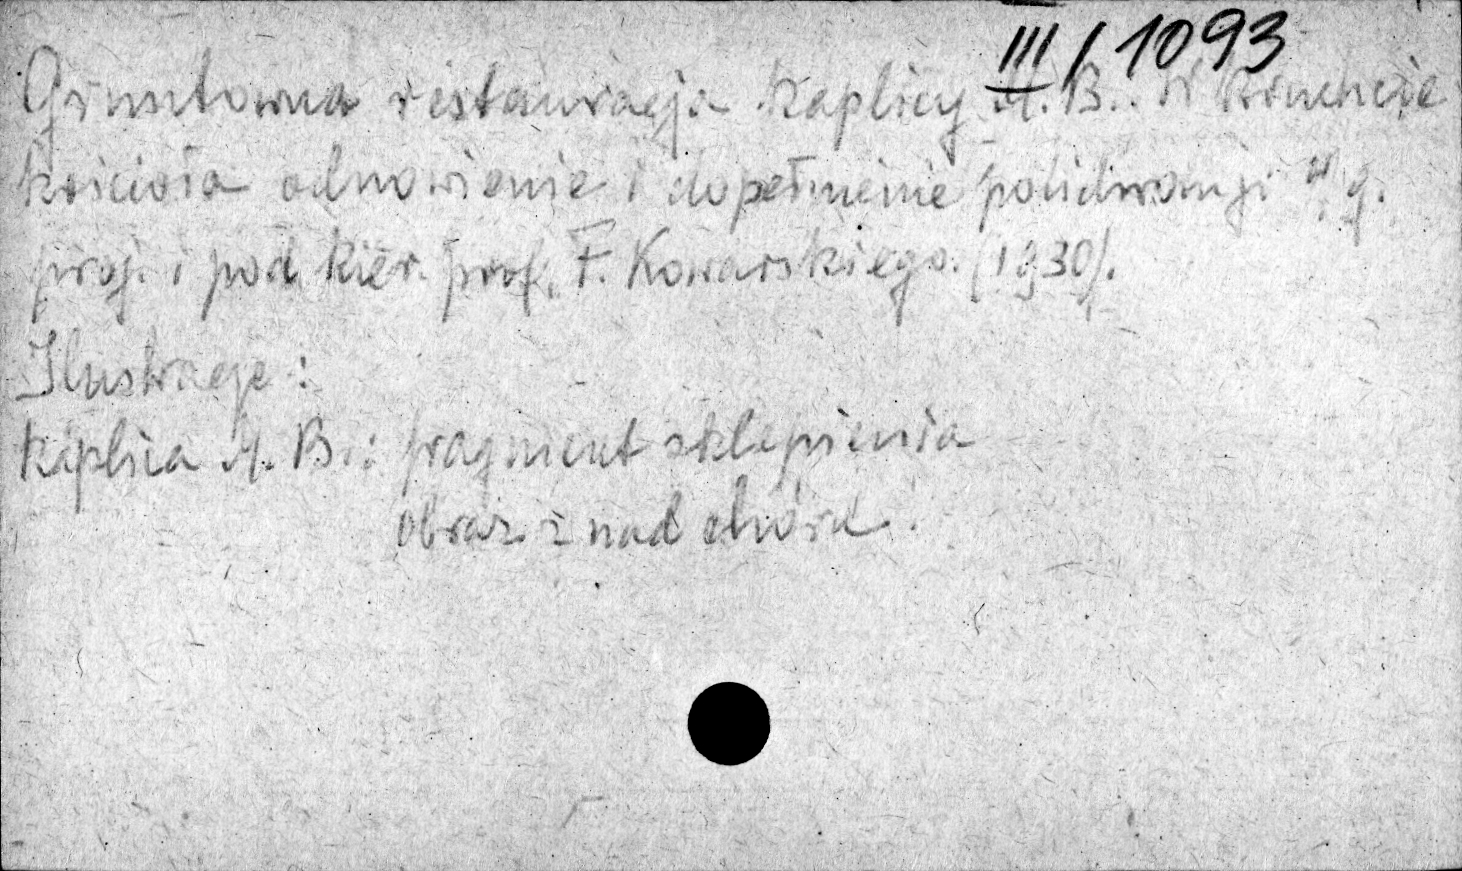 III/1093
Gruntowna restauracja kaplicy M.B.. W kruchcie
kościoła odnowienie i dopełnienie polichromji w g.
proj. i pod kier. prof. F. Kowarskiego. (1930).
Ilustracje:
Kaplica M. B.: fragment sklepienia
obraz z nad chóru.